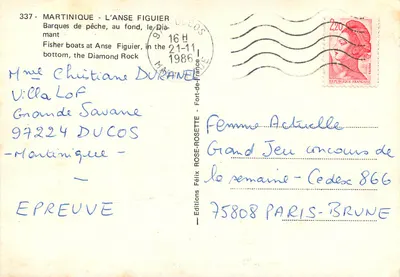 337 - MARTINIQUE - L'ANSE FIGUIER
Barques de pêche, au fond, le Dia-
mant
Fisher boats at Anse Figuier, in the
bottom, the Diamond Rock
DUCOS
16 H
21-11
1986
Mme Christiane DURANEL
Villa LoF
Grande Savane
97224 DUCOS
- Martinique -
EPREUVE
Editions Félix ROSE-ROSETTE - Fort-de-France
Femme Actuelle
Grand Jeu concours de
la semaine - Cedex 866
75808 PARIS-BRUNE